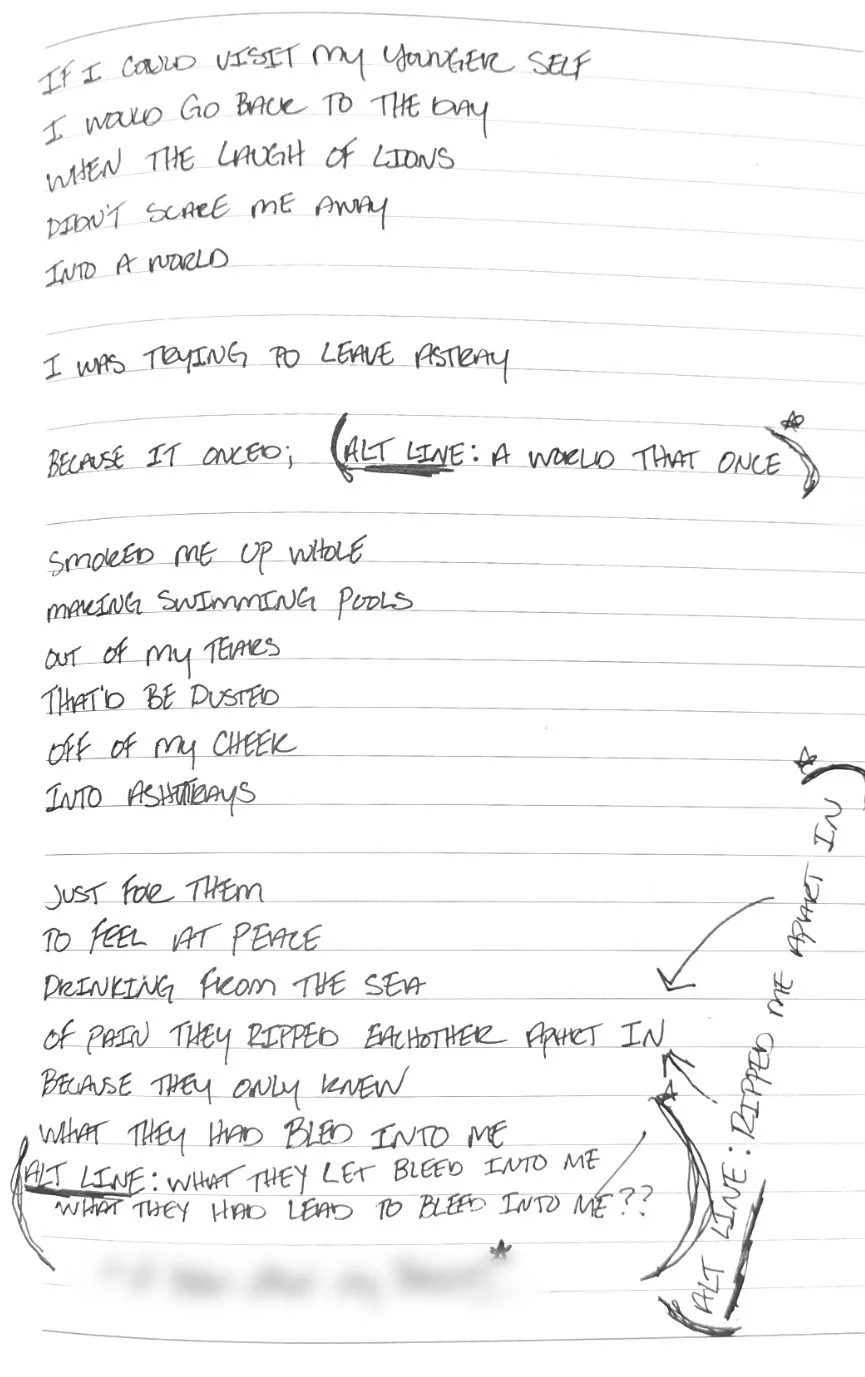 IF I COULD VISIT MY YOUNGER SELF
I WOULD GO BACK TO THE DAY
WHEN THE LAUGH OF LIONS
DIDN'T SCARE ME AWAY
INTO A WORLD
I WAS TRYING TO LEAVE ASTRAY
BECAUSE IT ONCED; (ALT LINE: A WORLD THAT ONCE)*
SMOKED ME UP WHOLE
MAKING SWIMMING POOLS
OUT OF MY TEARS
THAT'D BE DUSTED
OFF OF MY CHEEK
INTO ASHTRAYS
JUST FOR THEM
TO FEEL AT PEACE
DRINKING FROM THE SEA
OF PAIN THEY RIPPED EACHOTHER APART IN
BECAUSE THEY ONLY KNEW
WHAT THEY HAD BLED INTO ME
(ALT LINE: WHAT THEY LET BLEED INTO ME
WHAT THEY HAD LEAD TO BLEED INTO ME??)*
(ALT LINE: RIPPED ME APART IN)*